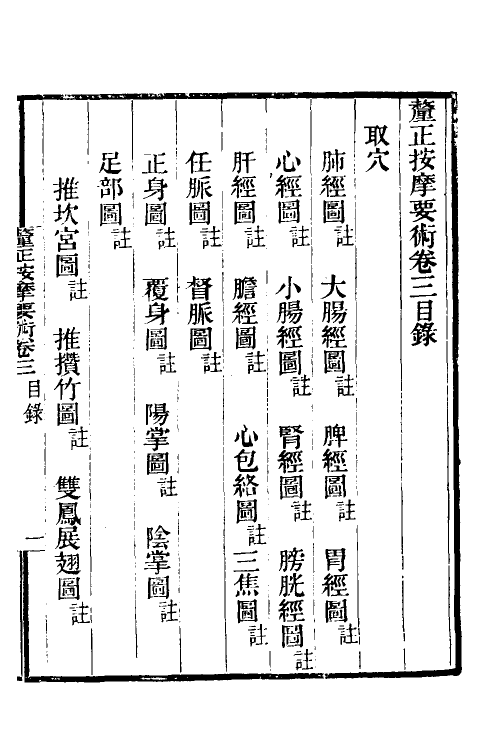 釐正按摩要術卷三目錄
取穴
肺經圖註 大腸經圖註 脾經圖註 胃經圖註
心經圖註 小腸經圖註 腎經圖註 膀胱經圖註
肝經圖註 膽經圖註 心包絡圖註 三焦圖註
任脈圖註 督脈圖註
正身圖註 覆身圖註 陽掌圖註 陰掌圖註
足部圖註
推坎宮圖註 推攢竹圖註 雙鳳展翅圖註
釐正按摩要術卷三 目錄 一